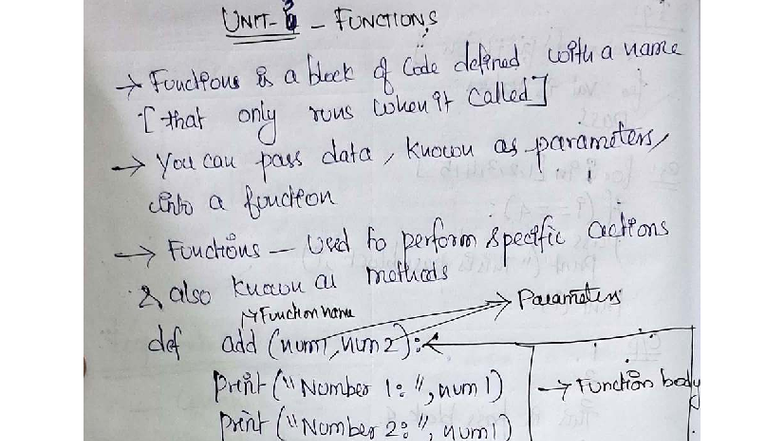 UNIT- - FUNCTIONS
→ Functions is a block of code defined with a name
[that only runs when it called]
→ You can pass data, known as parameters,
into a function
→ Functions — used to perform specific actions
& also known as methods
→ Function name
→ Parameters
def add (num1, num2):
print ("Number 1: ", num1)
→ Function body
print ("Number 2: ", num1)